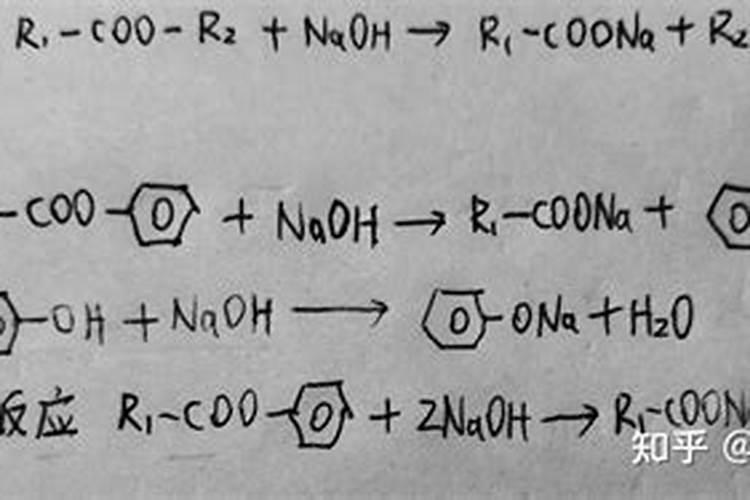 R₁-COO-R₂ + NaOH → R₁-COONa + R₂
-COO-⌬ + NaOH → R₁-COONa + ⌬
⌬-OH + NaOH → ⌬-ONa + H₂O
反应 R₁-COO-⌬ + 2NaOH → R₁-COON
知乎 @